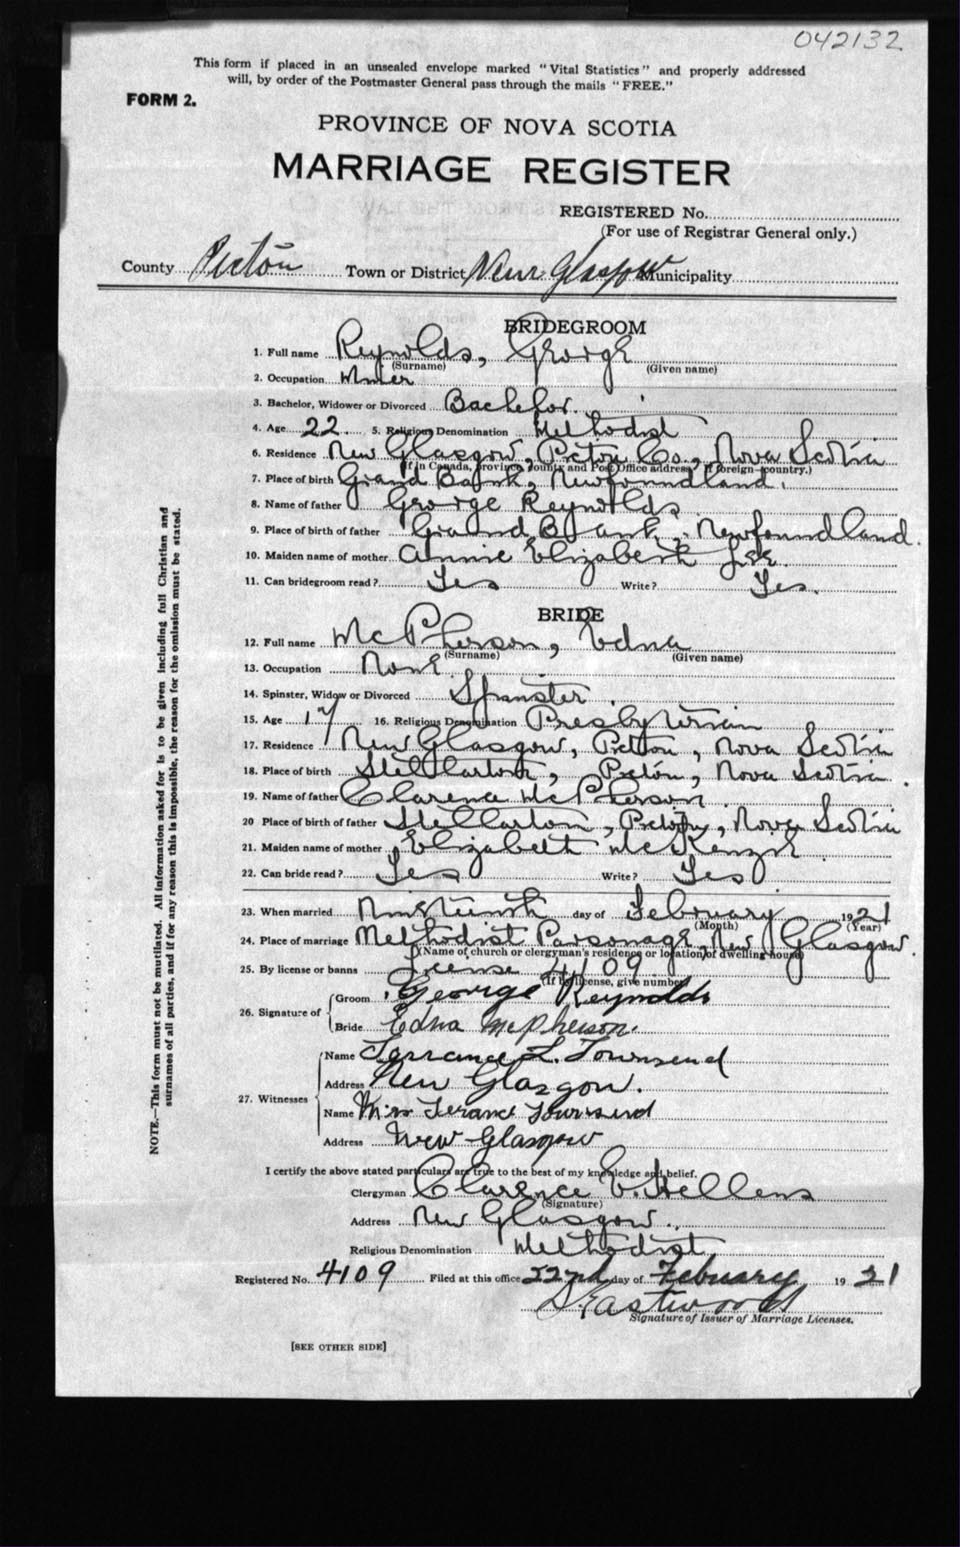 042132
This form if placed in an unsealed envelope marked "Vital Statistics" and properly addressed
will, by order of the Postmaster General pass through the mails "FREE."
FORM 2.
PROVINCE OF NOVA SCOTIA
MARRIAGE REGISTER
REGISTERED No.
(For use of Registrar General only.)
County Pictou Town or District New Glasgow Municipality
BRIDEGROOM
1. Full name Reynolds, George
(Surname) (Given name)
2. Occupation Miner
3. Bachelor, Widower or Divorced Bachelor.
4. Age 22 5. Religious Denomination Methodist
6. Residence New Glasgow, Pictou Co., Nova Scotia
(If in Canada, province, county and Post Office address; if foreign country.)
7. Place of birth Grand Bank, Newfoundland.
8. Name of father George Reynolds.
9. Place of birth of father Grand Bank, Newfoundland.
10. Maiden name of mother Annie Elizabeth Lee.
11. Can bridegroom read? Yes Write? Yes.
BRIDE
12. Full name McPherson, Edna
(Surname) (Given name)
13. Occupation None.
14. Spinster, Widow or Divorced Spinster.
15. Age 17 16. Religious Denomination Presbyterian
17. Residence New Glasgow, Pictou, Nova Scotia
18. Place of birth Stellarton, Pictou, Nova Scotia.
19. Name of father Clarence McPherson.
20 Place of birth of father Stellarton, Pictou, Nova Scotia
21. Maiden name of mother Elizabeth McKenzie.
22. Can bride read? Yes Write? Yes
23. When married Nineteenth day of February 1921
(Month) (Year)
24. Place of marriage Methodist Parsonage, New Glasgow.
(Name of church or clergyman's residence or location of dwelling house)
25. By license or banns License 4109
(If by license, give number)
26. Signature of
Groom George Reynolds
Bride Edna McPherson.
27. Witnesses
Name Terrance L. Townsend
Address New Glasgow.
Name Mrs Terance Townsend
Address New Glasgow
I certify the above stated particulars are true to the best of my knowledge and belief.
Clergyman Clarence E. Hellens
(Signature)
Address New Glasgow.
Religious Denomination Methodist
Registered No. 4109 Filed at this office 22nd day of February 1921
Eastwood
Signature of Issuer of Marriage Licenses.
[SEE OTHER SIDE]
NOTE.—This form must not be mutilated. All information asked for is to be given including full Christian and
surnames of all parties, and if for any reason this is impossible, the reason for the omission must be stated.